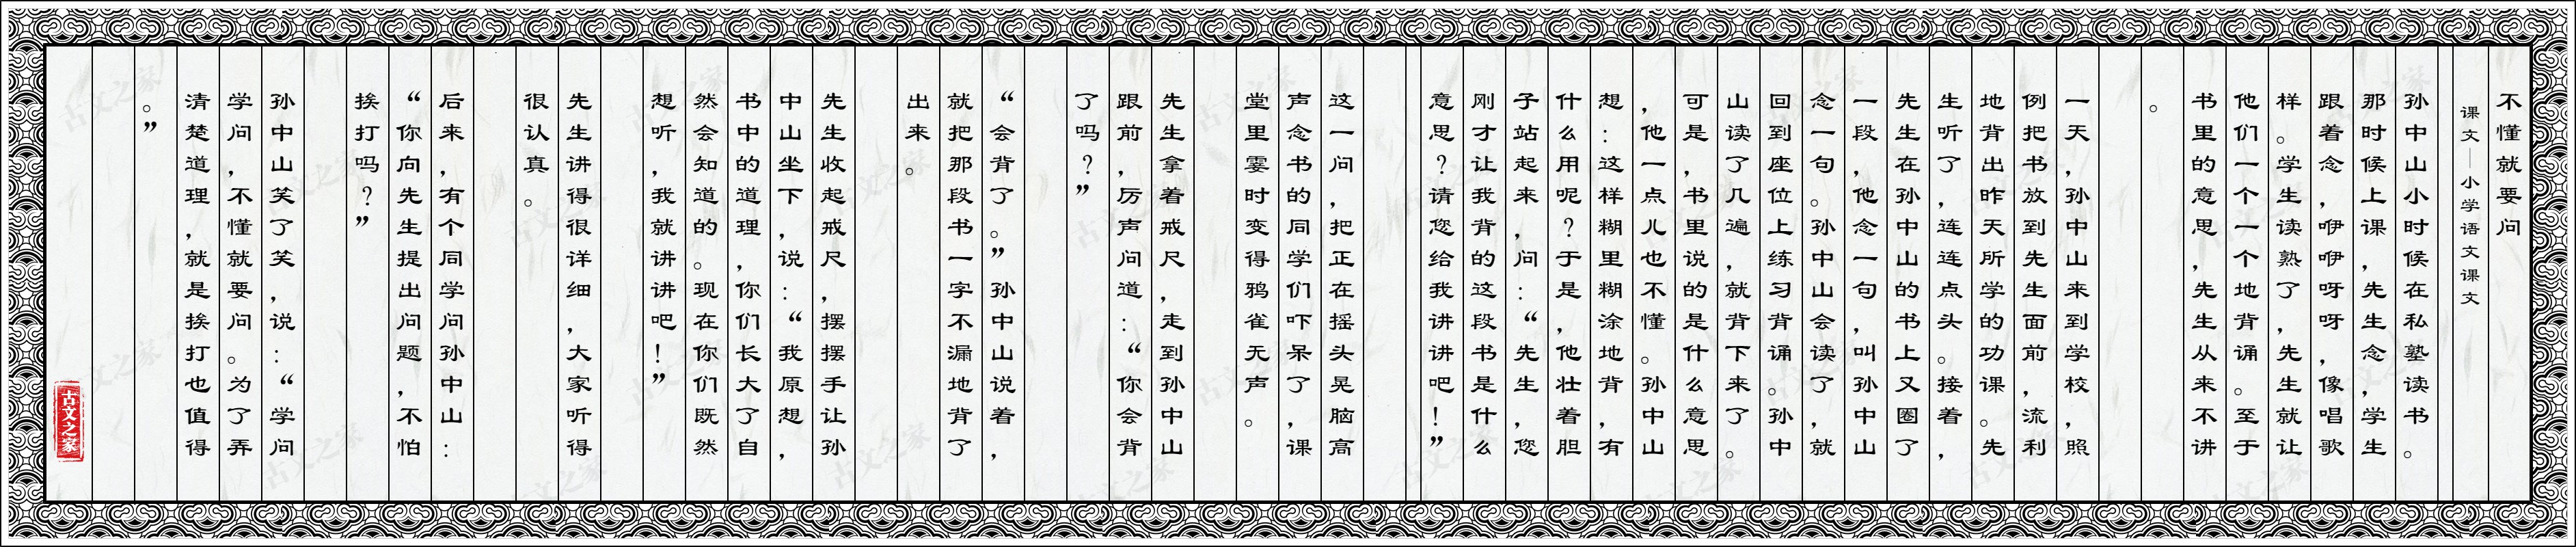 不懂就要问
课文｜小学语文课文
孙中山小时候在私塾读书。
那时候上课，先生念，学生
跟着念，咿咿呀呀，像唱歌
样。学生读熟了，先生就让
他们一个一个地背诵。至于
书里的意思，先生从来不讲
。
一天，孙中山来到学校，照
例把书放到先生面前，流利
地背出昨天所学的功课。先
生听了，连连点头。接着，
先生在孙中山的书上又圈了
一段，他念一句，叫孙中山
念一句。孙中山会读了，就
回到座位上练习背诵。孙中
山读了几遍，就背下来了。
可是，书里说的是什么意思
，他一点儿也不懂。孙中山
想：这样糊里糊涂地背，有
什么用呢？于是，他壮着胆
子站起来，问：“先生，您
刚才让我背的这段书是什么
意思？请您给我讲讲吧！”
这一问，把正在摇头晃脑高
声念书的同学们吓呆了，课
堂里霎时变得鸦雀无声。
先生拿着戒尺，走到孙中山
跟前，厉声问道：“你会背
了吗？”
“会背了。”孙中山说着，
就把那段书一字不漏地背了
出来。
先生收起戒尺，摆摆手让孙
中山坐下，说：“我原想，
书中的道理，你们长大了自
然会知道的。现在你们既然
想听，我就讲讲吧！”
先生讲得很详细，大家听得
很认真。
后来，有个同学问孙中山：
“你向先生提出问题，不怕
挨打吗？”
孙中山笑了笑，说：“学问
学问，不懂就要问。为了弄
清楚道理，就是挨打也值得
。”
古文之家